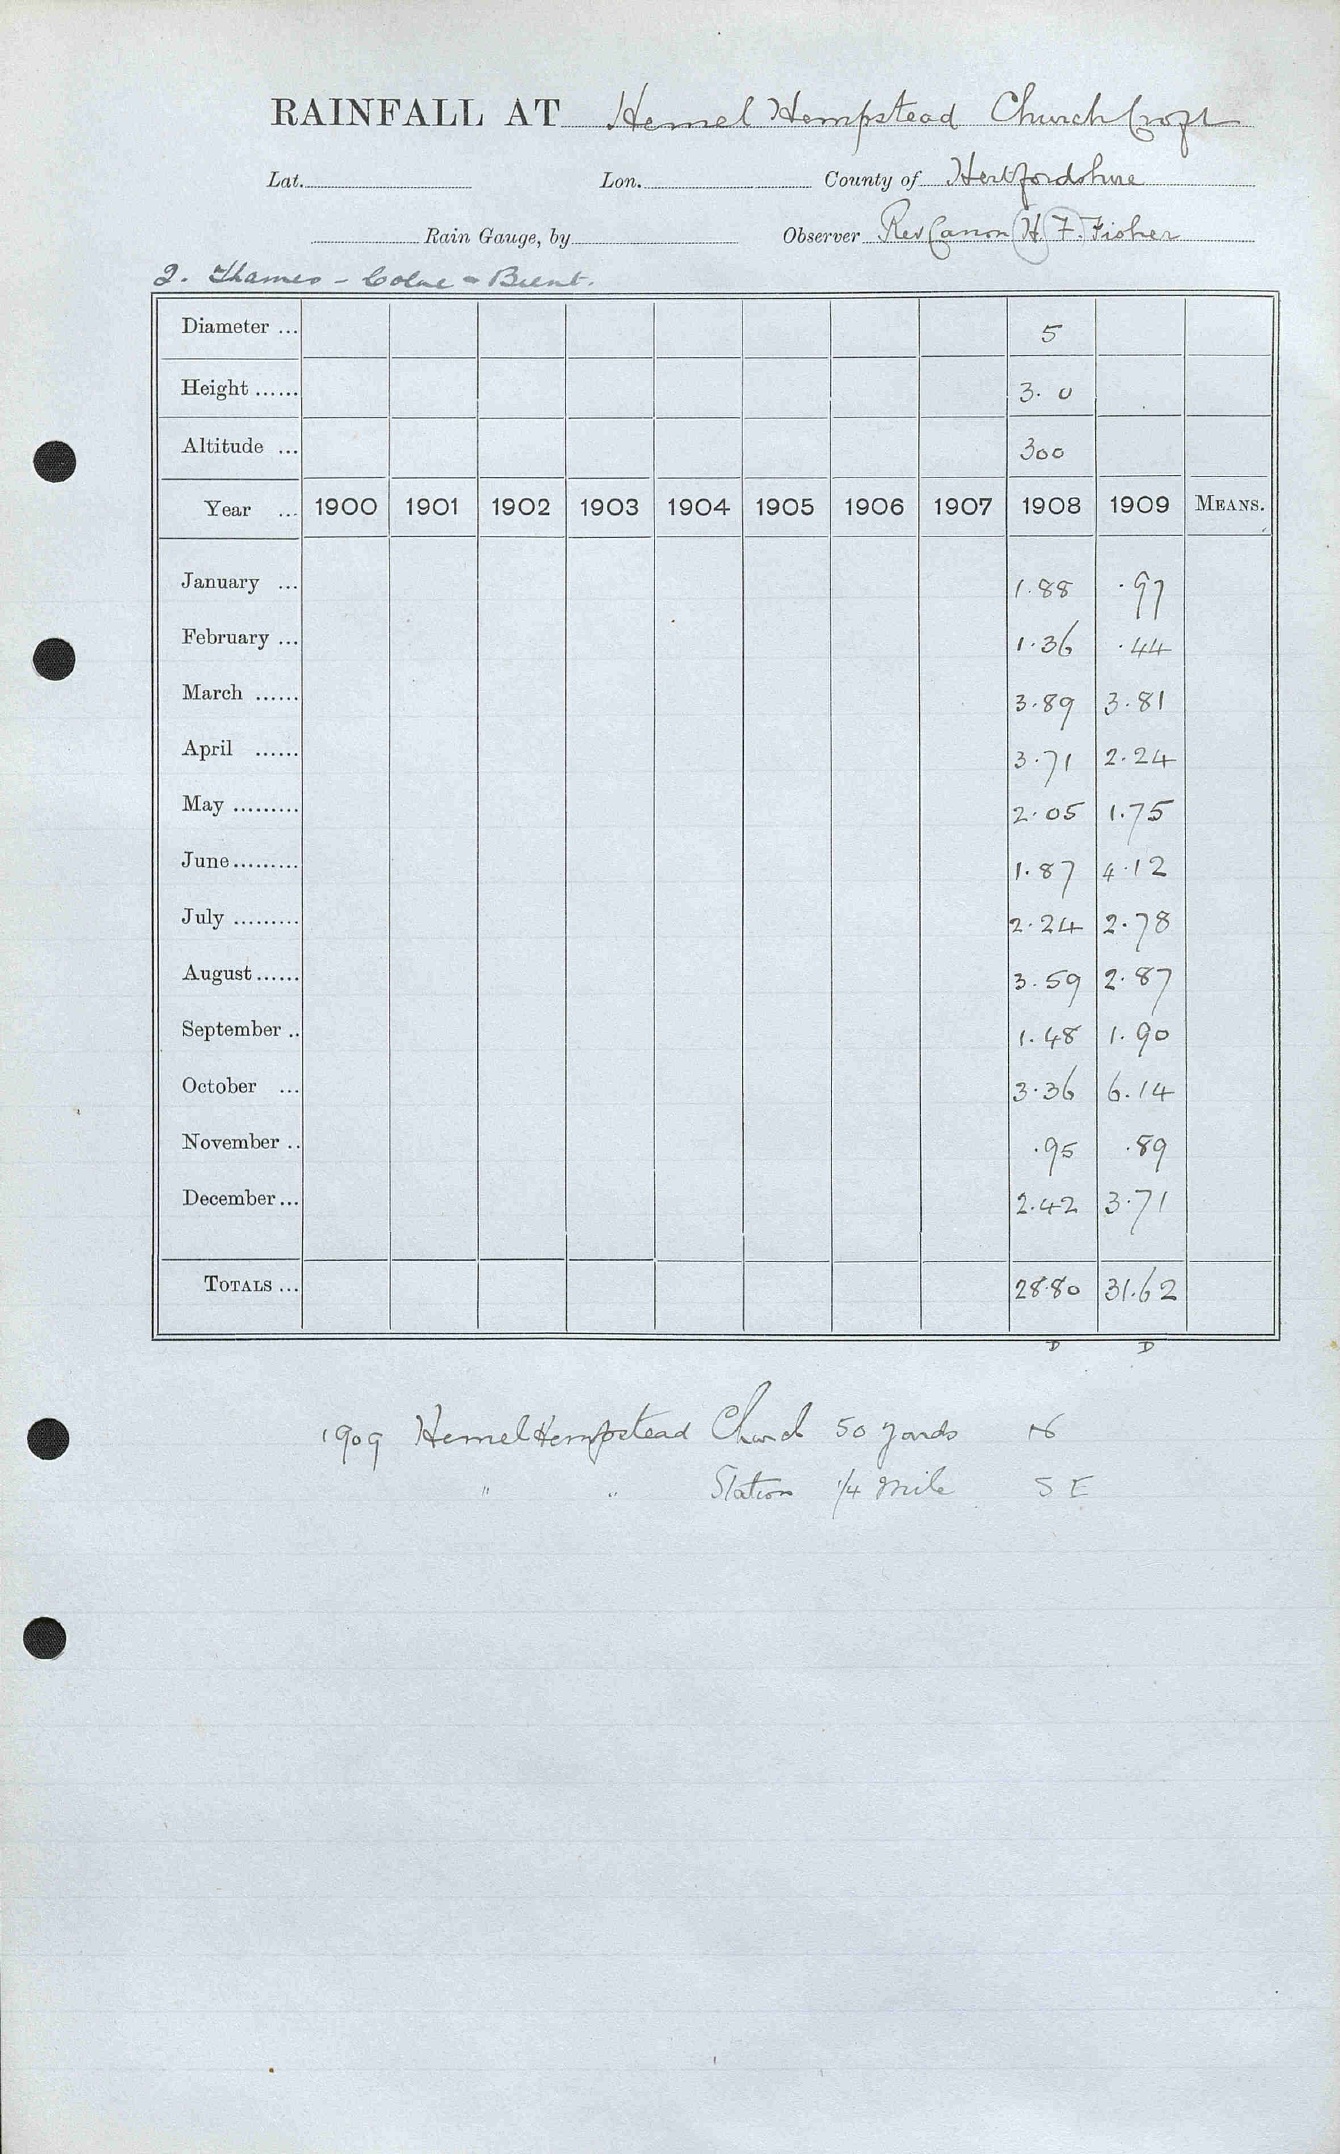 RAINFALL AT Hemel Hempstead Church Croft
Lat. Lon. County of Hertfordshire
Rain Gauge, by Observer Rev Canon (H) F. Fisher
2. Thames - Colne - Brent.
Diameter ... 5
Height ...... 3. 0
Altitude ... 300
Year ... 1900 1901 1902 1903 1904 1905 1906 1907 1908 1909 MEANS.
January ... 1.88 .97
February ... 1.36 .44
March ...... 3.89 3.81
April ...... 3.71 2.24
May ......... 2.05 1.75
June ......... 1.87 4.12
July ......... 2.24 2.78
August ...... 3.59 2.87
September .. 1.48 1.90
October ... 3.36 6.14
November .. .95 .89
December ... 2.42 3.71
TOTALS ... 28.80 31.62
D D
1909 Hemel Hempstead Church 50 yards N
" " Station 1/4 mile S E